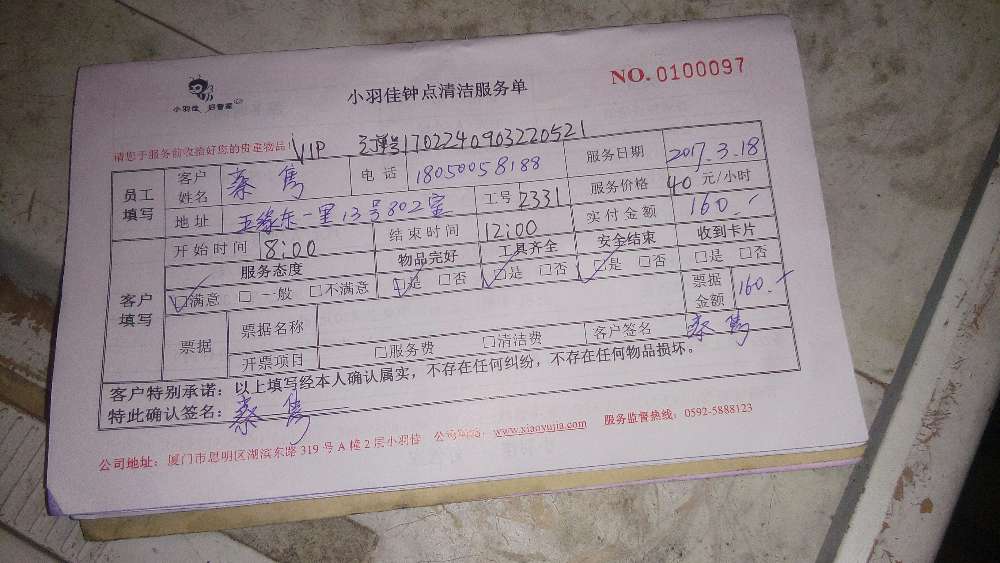 小羽佳 好管家
小羽佳钟点清洁服务单
NO. 0100097
请您于服务前收拾好您的贵重物品! VIP 1702240903220521
员工填写 客户姓名 蔡隽 电话 18050058188 服务日期 2017.3.18
地址 五缘东一里13号802室 工号 2331 服务价格 40元/小时
开始时间 8:00 结束时间 12:00 实付金额 160.-
客户填写 服务态度 物品完好 工具齐全 安全结束 收到卡片
☑满意 □一般 □不满意 ☑是 □否 ☑是 □否 ☑是 □否 □是 □否
票据 票据名称 票据金额 160.-
开票项目 □服务费 □清洁费 客户签名 蔡隽
客户特别承诺：以上填写经本人确认属实，不存在任何纠纷，不存在任何物品损坏。
特此确认签名：蔡隽
公司地址：厦门市思明区湖滨东路319号A幢2层小羽佳 公司网站：www.xiaoyujia.com 服务监督热线：0592-5888123